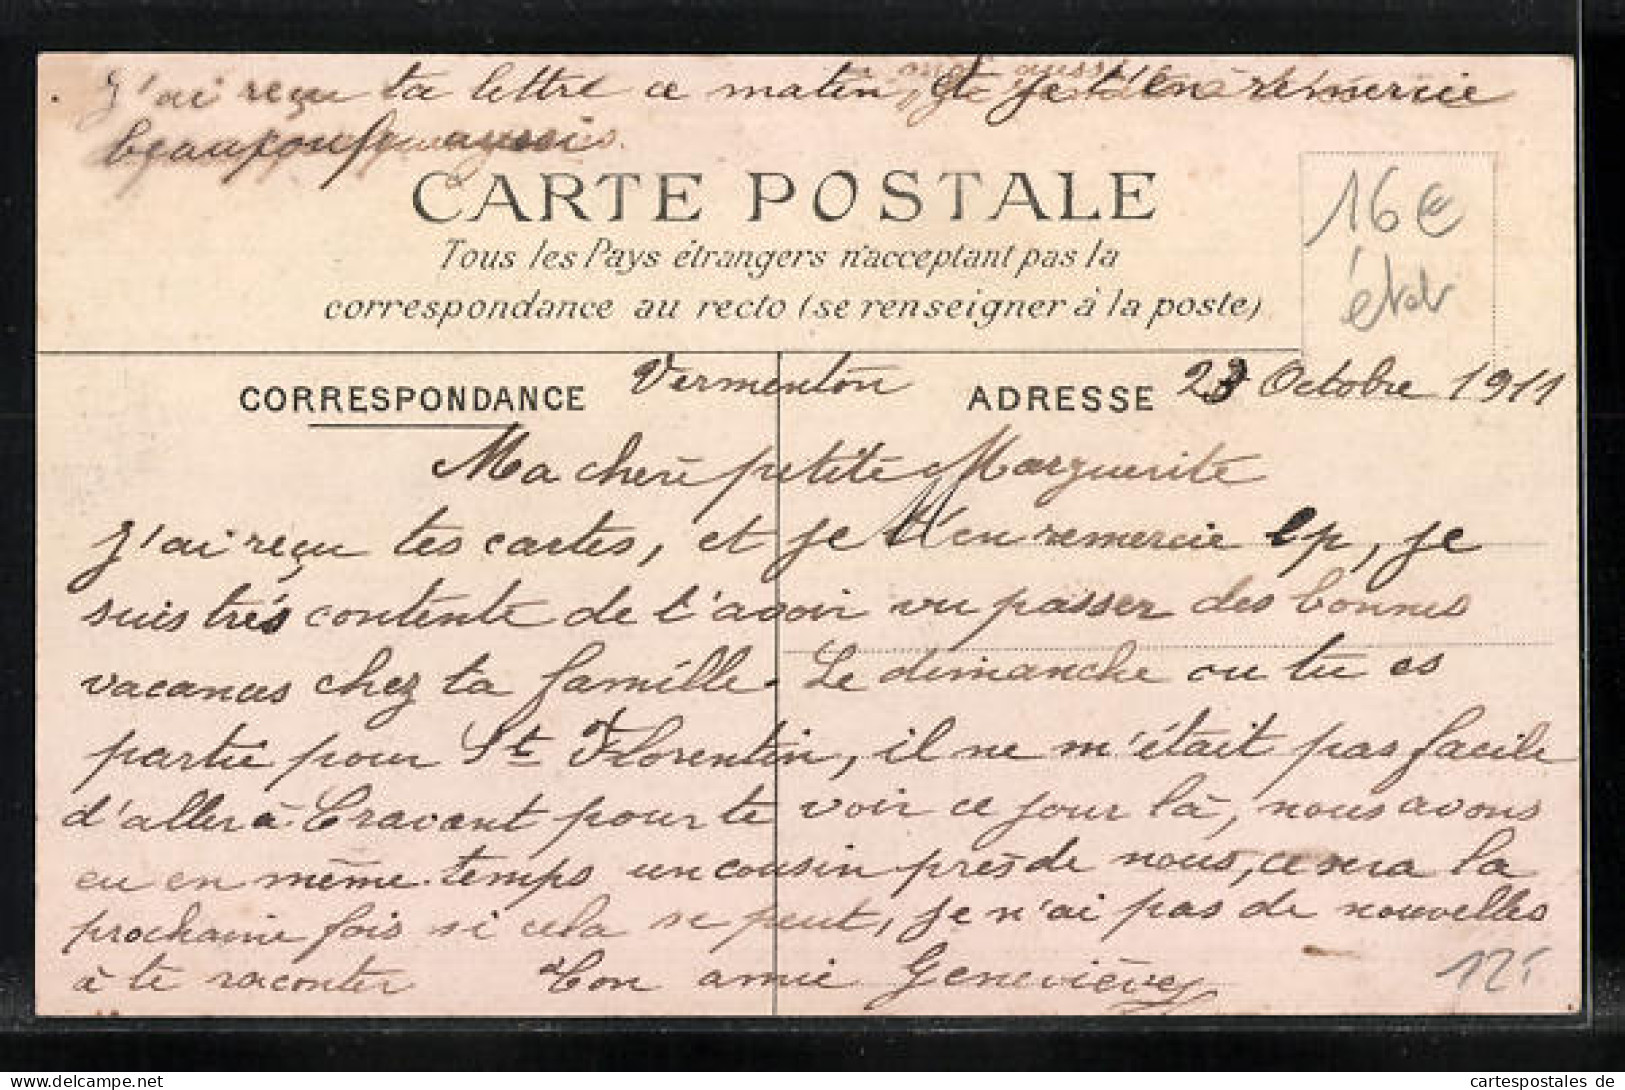 J'ai reçu ta lettre ce matin et je t'en remercie
beaucoup
CARTE POSTALE
Tous les Pays étrangers n'acceptant pas la
correspondance au recto (se renseigner à la poste)
16€
état
CORRESPONDANCE
ADRESSE
Vermenton 23 Octobre 1911
Ma chère petite Marguerite
J'ai reçu tes cartes, et je t'en remercie bp, je
suis très contente de t'avoir vu passer des bonnes
vacances chez ta famille. Le dimanche ou tu es
partie pour St Florentin, il ne m'était pas facile
d'aller à Cravant pour te voir ce jour là, nous avons
eu en même temps un cousin près de nous, ce sera la
prochaine fois si cela se peut, je n'ai pas de nouvelles
à te raconter Ton amie Geneviève
12
cartespostales de
cartespostales.de